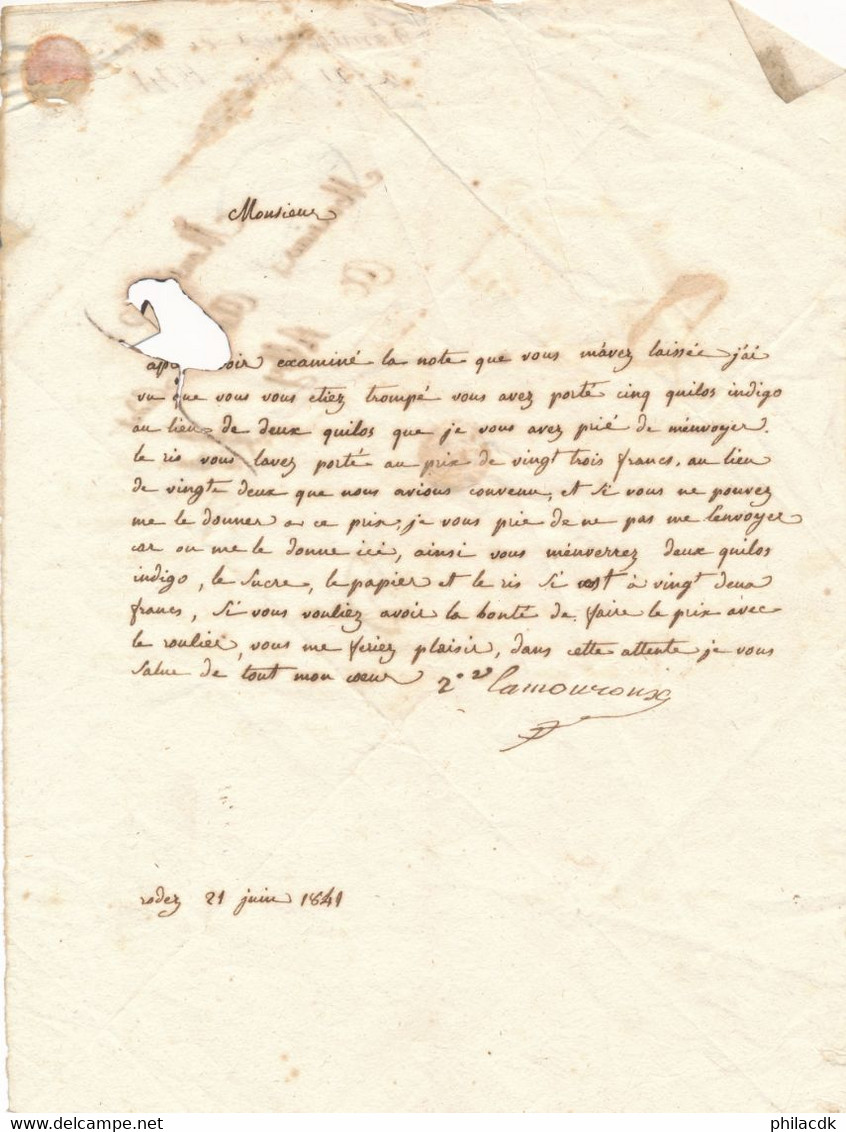 Monsieur
voir examiné la note que vous m'avez laissée j'ai
vu que vous vous etiez trompé vous avez porté cinq quilos indigo
au lieu de deux quilos que je vous avez prié de m'envoyer.
le ris vous lavez porté au prix de vingt trois francs, au lieu
de vingt deux que nous avions convenu, et si vous ne pouvez
me le donner a ce prix, je vous prie de ne pas me l'envoyer
car on me le donne ici, ainsi vous m'enverrez deux quilos
indigo, le sucre, le papier et le ris si est à vingt deux
francs, si vous vouliez avoir la bonté de faire le prix avec
le roulier, vous me feriez plaisir, dans cette attente je vous
salue de tout mon coeur
lamouroux
rodez 21 juin 1841
delcampe.net
philacdk